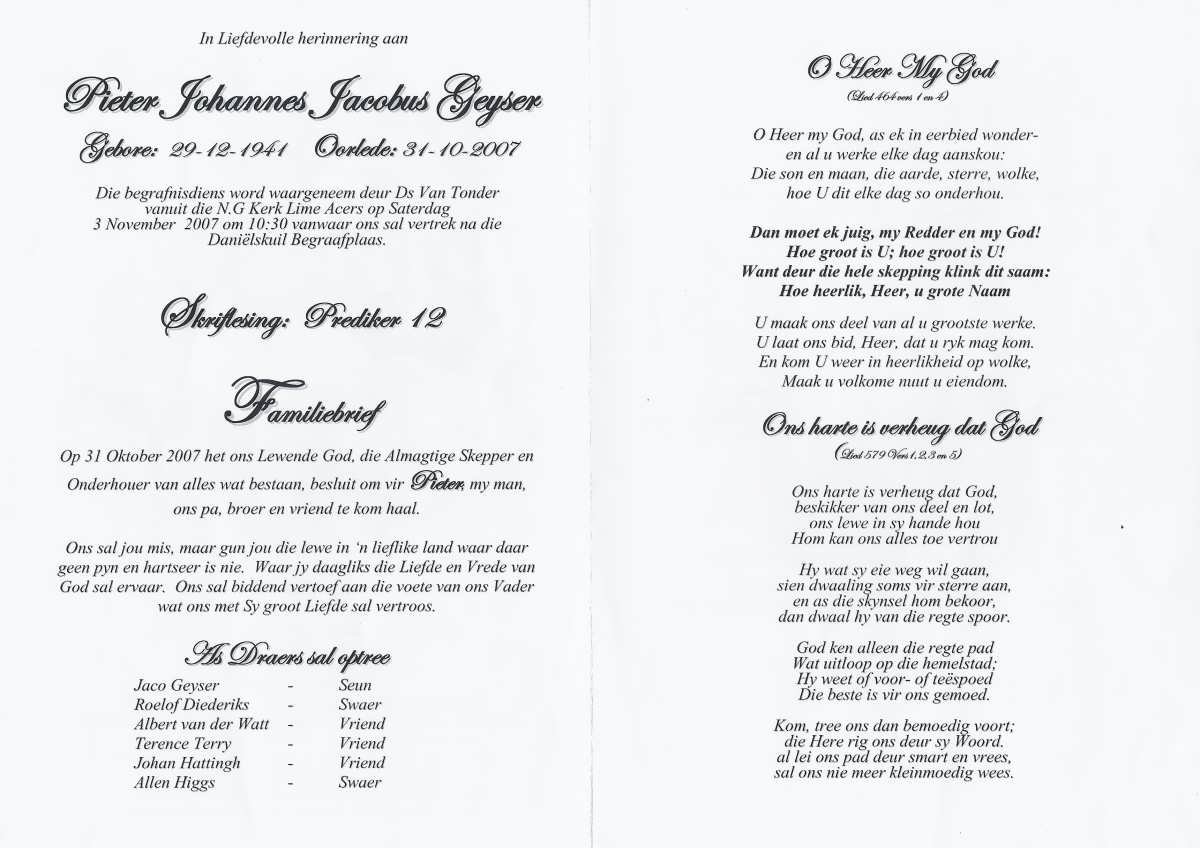 In Liefdevolle herinnering aan
Pieter Johannes Jacobus Geyser
Gebore: 29-12-1941 Oorlede: 31-10-2007
Die begrafnisdiens word waargeneem deur Ds Van Tonder
vanuit die N.G Kerk Lime Acers op Saterdag
3 November 2007 om 10:30 vanwaar ons sal vertrek na die
Daniëlskuil Begraafplaas.
Skriflesing: Prediker 12
Familiebrief
Op 31 Oktober 2007 het ons Lewende God, die Almagtige Skepper en
Onderhouer van alles wat bestaan, besluit om vir Pieter, my man,
ons pa, broer en vriend te kom haal.
Ons sal jou mis, maar gun jou die lewe in ‘n lieflike land waar daar
geen pyn en hartseer is nie. Waar jy daagliks die Liefde en Vrede van
God sal ervaar. Ons sal biddend vertoef aan die voete van ons Vader
wat ons met Sy groot Liefde sal vertroos.
As Draers sal optree
Jaco Geyser - Seun
Roelof Diederiks - Swaer
Albert van der Watt - Vriend
Terence Terry - Vriend
Johan Hattingh - Vriend
Allen Higgs - Swaer
O Heer My God
(Lied 464 vers 1 en 4)
O Heer my God, as ek in eerbied wonder-
en al u werke elke dag aanskou:
Die son en maan, die aarde, sterre, wolke,
hoe U dit elke dag so onderhou.
Dan moet ek juig, my Redder en my God!
Hoe groot is U; hoe groot is U!
Want deur die hele skepping klink dit saam:
Hoe heerlik, Heer, u grote Naam
U maak ons deel van al u grootste werke.
U laat ons bid, Heer, dat u ryk mag kom.
En kom U weer in heerlikheid op wolke,
Maak u volkome nuut u eiendom.
Ons harte is verheug dat God
(Lied 579 Vers 1,2,3 en 5)
Ons harte is verheug dat God,
beskikker van ons deel en lot,
ons lewe in sy hande hou
Hom kan ons alles toe vertrou
Hy wat sy eie weg wil gaan,
sien dwaaling soms vir sterre aan,
en as die skynsel hom bekoor,
dan dwaal hy van die regte spoor.
God ken alleen die regte pad
Wat uitloop op die hemelstad;
Hy weet of voor- of teëspoed
Die beste is vir ons gemoed.
Kom, tree ons dan bemoedig voort;
die Here rig ons deur sy Woord.
al lei ons pad deur smart en vrees,
sal ons nie meer kleinmoedig wees.